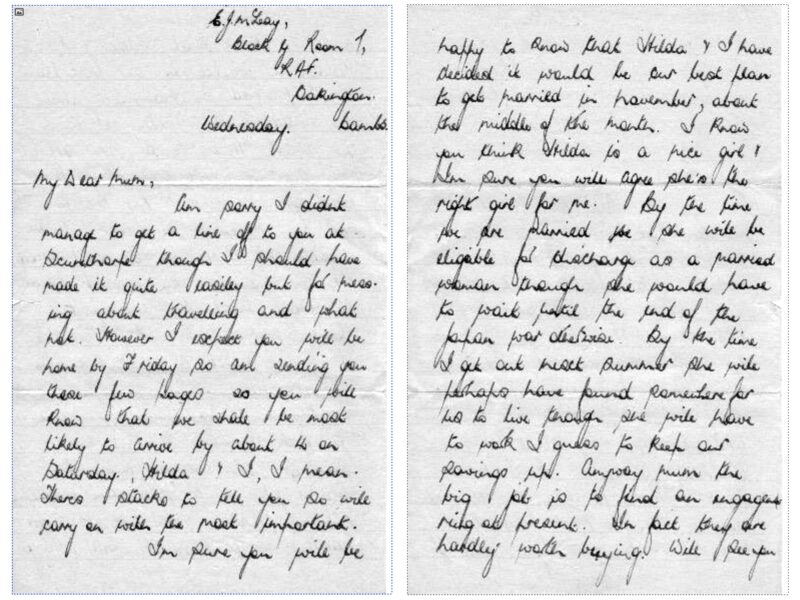 E.J. McLeay,
Block 4 Room 1,
R.A.F.
Oakington.
Wednesday. Cambs.
My Dear Mum,
Am sorry I didnt
manage to get a line off to you at
Scunthorpe though I should have
made it quite easiley but for mess-
ing about travelling and what
not. However I expect you will be
home by Friday so am sending you
these few pages so you will
know that we shall be most
likely to arrive by about 4 on
Saturday., Hilda & I, I mean.
Theres stacks to tell you so will
carry on with the most important.
I'm sure you will be
happy to know that Hilda & I have
decided it would be our best plan
to get married in november, about
the middle of the month. I know
you think Hilda is a nice girl &
I'm sure you will agree she's the
right girl for me. By the time
we are married she will be
eligable for discharge as a married
woman though she would have
to wait until the end of the
Japan war otherwise. By the time
I get out next summer she will
perhaps have found somewhere for
us to live though she will have
to work I guess to keep our
savings up. Anyway mum the
big job is to find an engagem
ring at present. In fact they are
hardly worth buying. Will see you